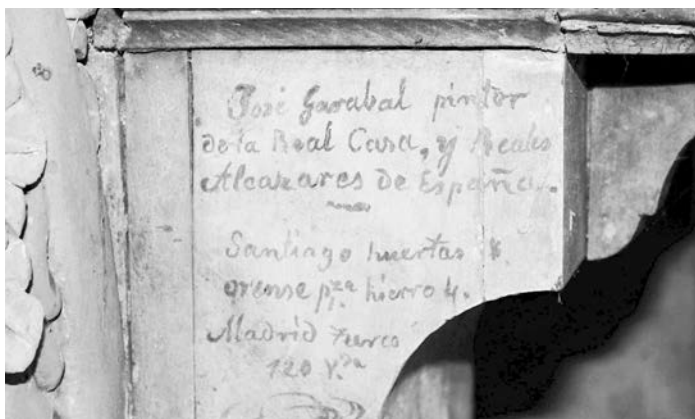 José Garabal pintor
de la Real Casa, y Reales
Alcazares de España.
Santiago huertas 8.
orense pza hierro 4.
Madrid
120